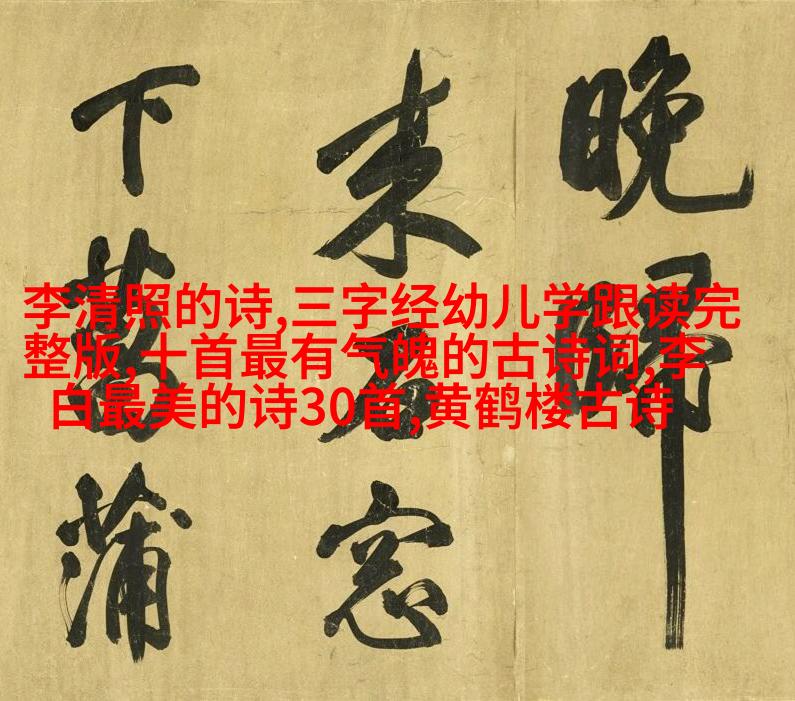 晚歸
来石窓
下菖蒲
李清照的诗,三字经幼儿学跟读完
整版,十首最有气魄的古诗词,李
白最美的诗30首,黄鹤楼古诗